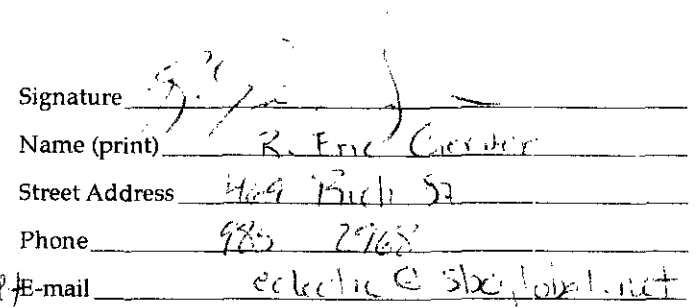 Signature
Name (print) R. Eric
Street Address 409 Rich St
Phone 985 2968
E-mail eclectic@sbcglobal.net